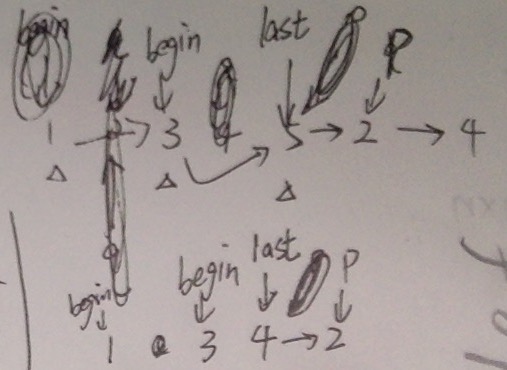 begin begin last P
1 → 3 5 → 2 → 4
begin begin last P
1 3 4 → 2